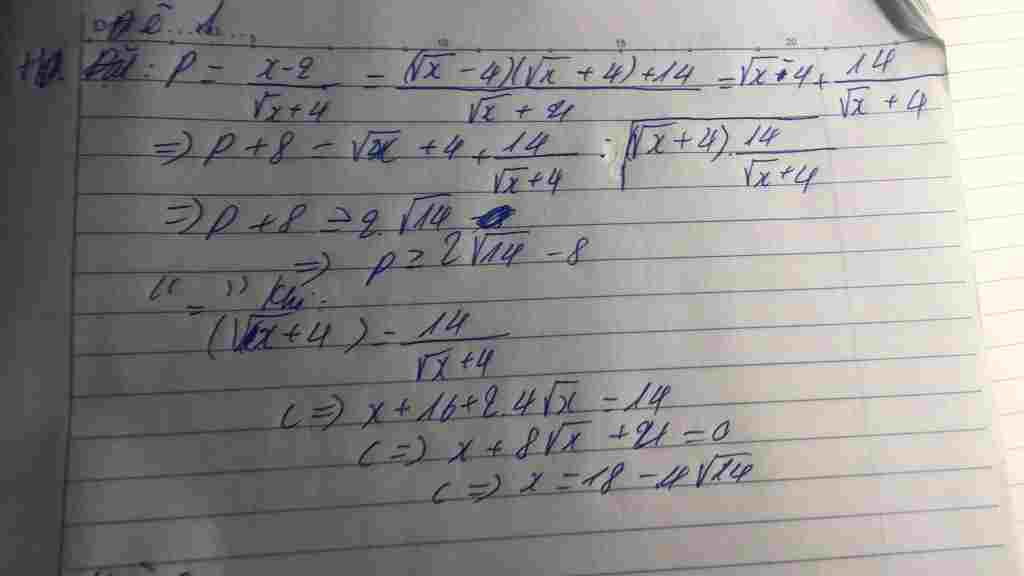 P = \frac{x-2}{\sqrt{x}+4} = \frac{(\sqrt{x}-4)(\sqrt{x}+4)+14}{\sqrt{x}+4} = \sqrt{x}-4+\frac{14}{\sqrt{x}+4}
=> P+8 = \sqrt{x}+4+\frac{14}{\sqrt{x}+4} \sqrt{(\sqrt{x}+4).\frac{14}{\sqrt{x}+4}}
=> P+8 ≥ 2.\sqrt{14}
=> P ≥ 2\sqrt{14}-8
"=" khi:
(\sqrt{x}+4) = \frac{14}{\sqrt{x}+4}
<=> x+16+2.4\sqrt{x} = 14
<=> x+8\sqrt{x}+2 = 0
<=> x = 18-4\sqrt{14}